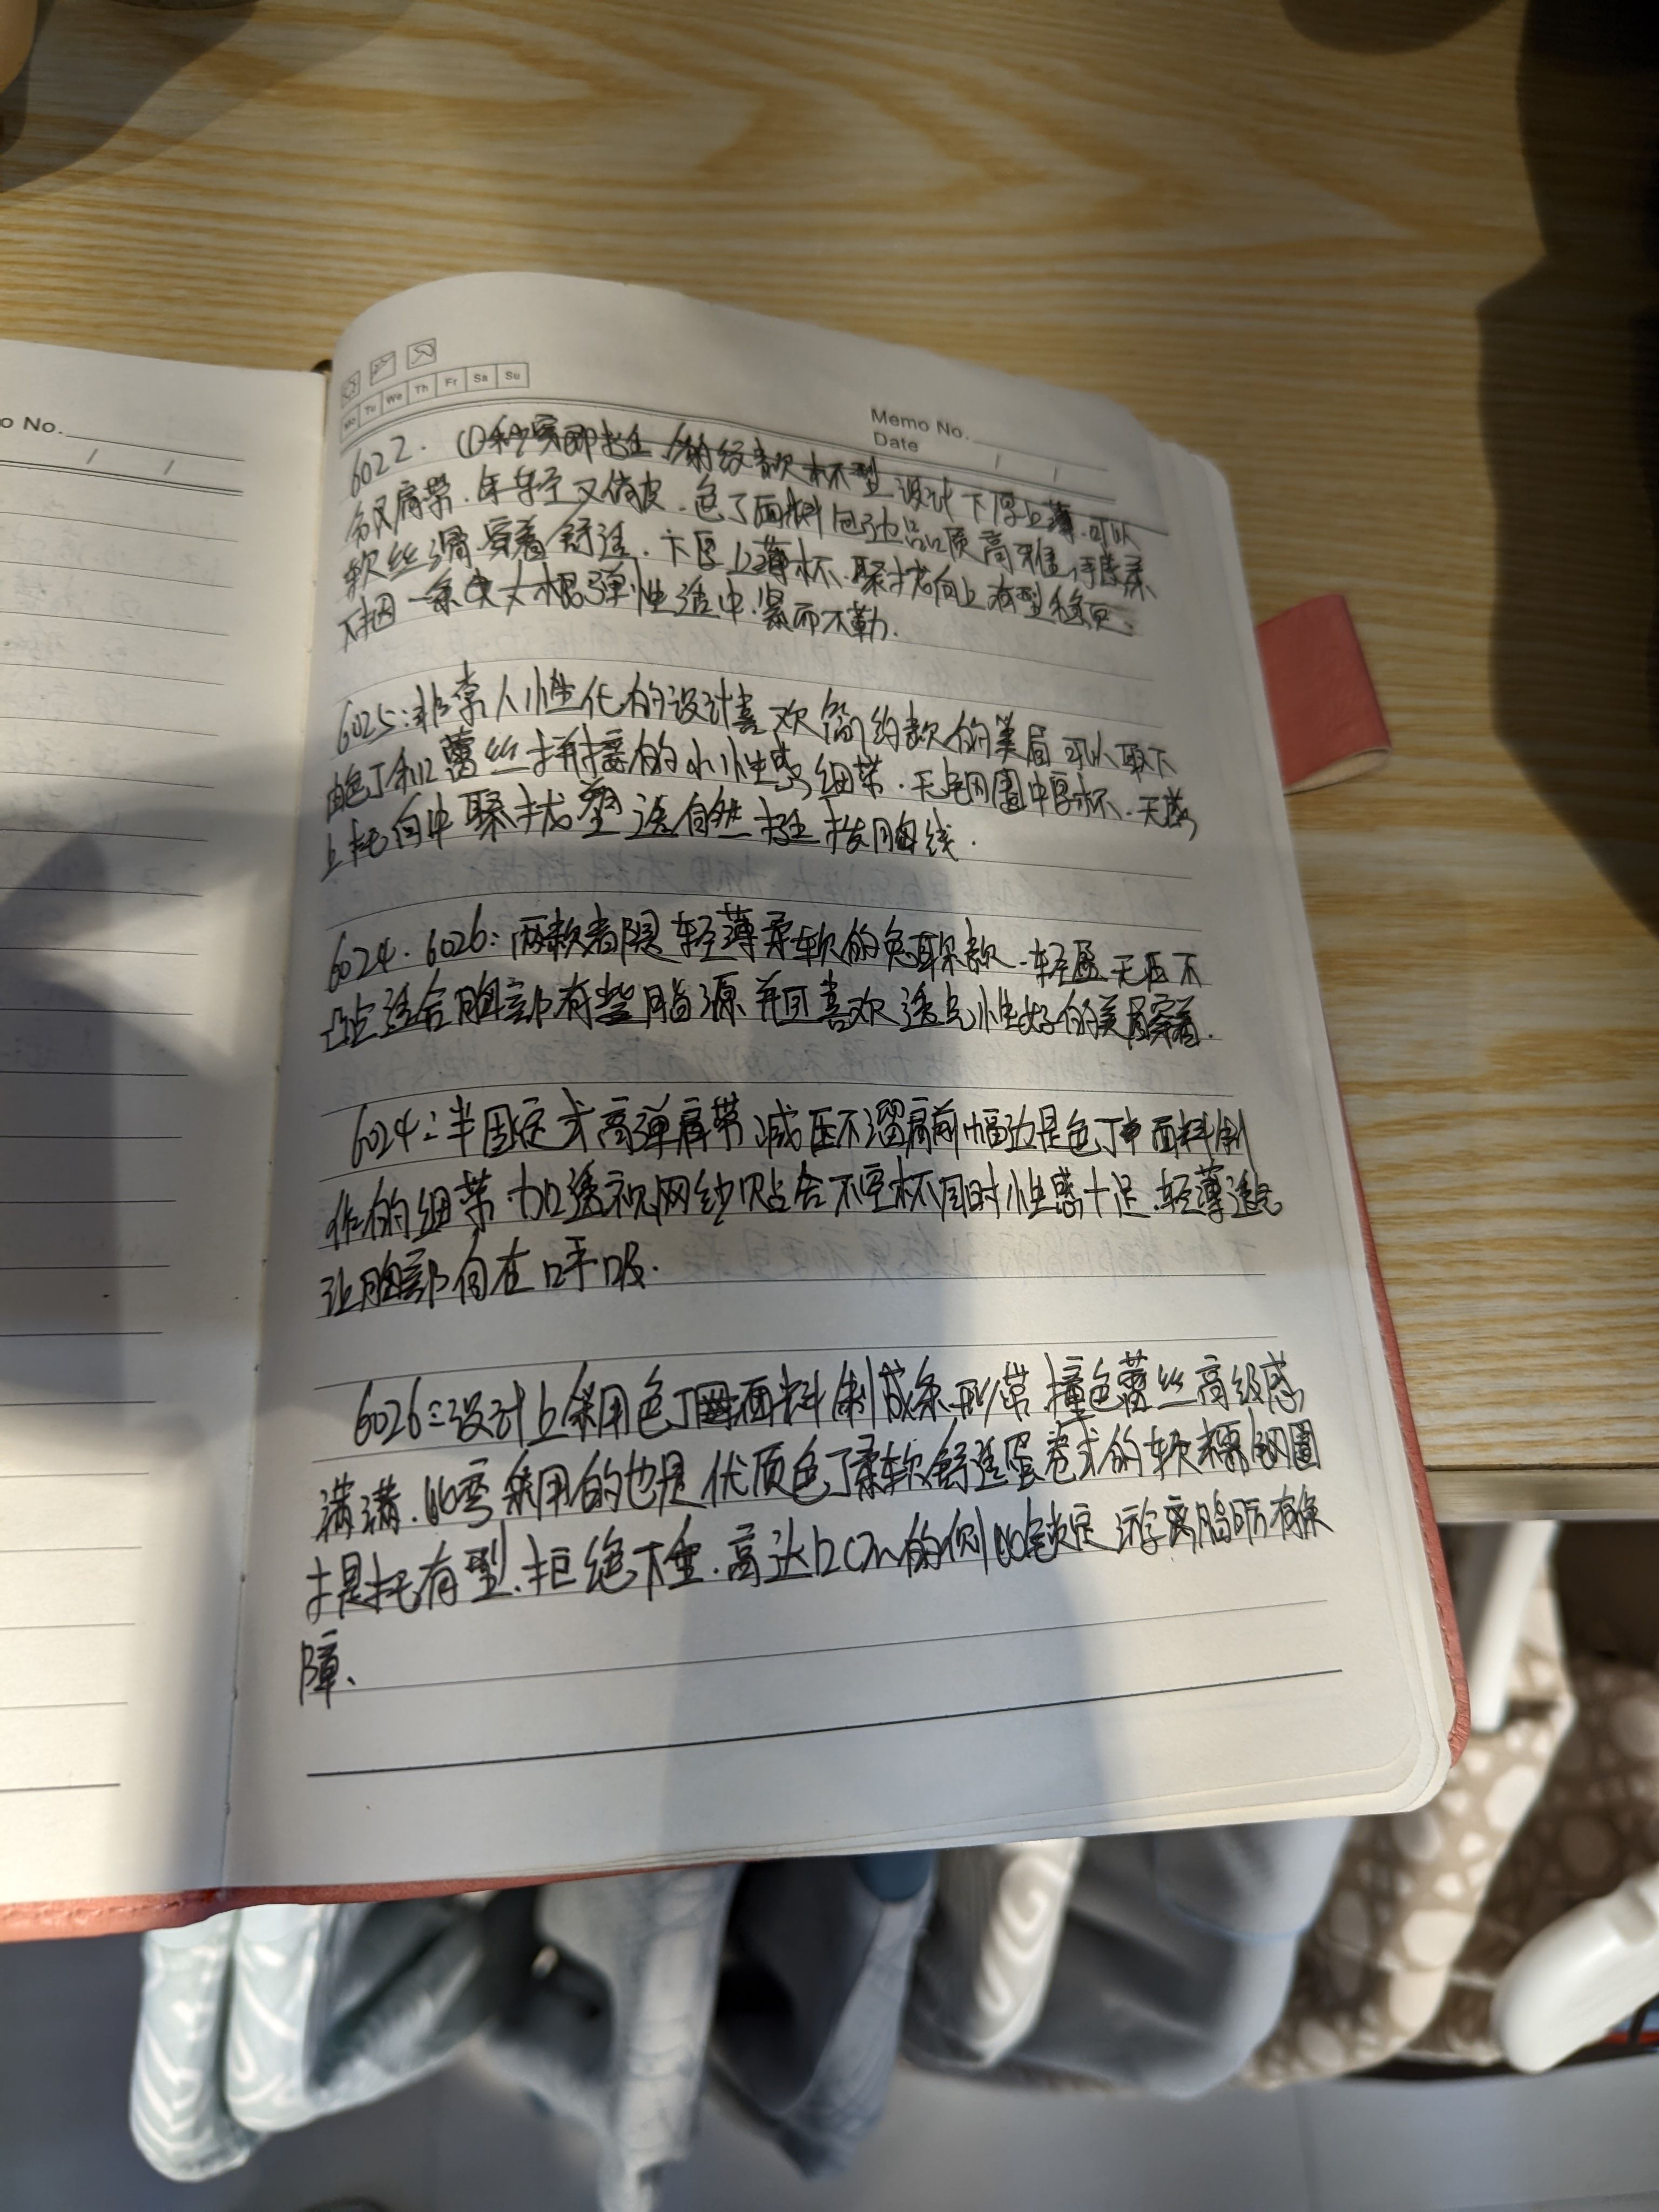 o No.
/ /
Mo Tu We Th Fr Sa Su
Memo No.
Date / /
6022. 款杯型 设计下厚上薄.可以
肩带.年轻又俏皮.色丁面料包边品质高雅
软丝滑 穿着舒适.下厚上薄杯.聚拢向上有型
一条 大根弹性适中.紧而不勒.
6025:非常人性化的设计喜欢简约款的美眉可以取下
由色丁和蕾丝拼接的小性感细带.无钢圈中厚杯.无感
上托向中聚拢塑造自然挺拔胸线.
6024.6026:两款都是轻薄柔软的兔耳朵款.轻盈无压不
凸点适合胸部有些脂源并且喜欢透气性好的美眉穿着.
6024:半固定式高弹肩带减压不溜肩前幅边是色丁面料制
作的细带加透视网纱贴合不空杯同时性感十足.轻薄透气
让胸部自在呼吸.
6026:设计上采用色丁面料制成条形带撞色蕾丝高级感
满满.比弯采用的也是优质色丁柔软舒适蛋卷式的软钢圈
提托有型.拒绝下垂.高达12cm的侧比锁定游离脂肪有保
障、